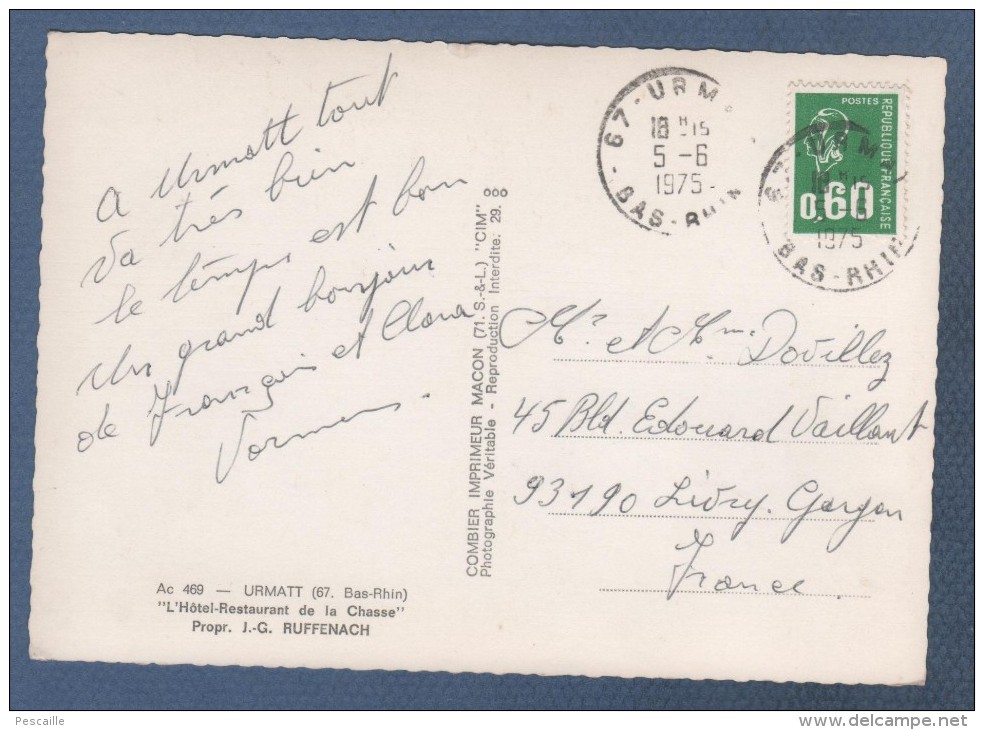 A Urmatt tout
va très bien
le temps est bon
Un grand bonjour
de François et Clara
COMBIER IMPRIMEUR MACON (71. S.-&-L.) "CIM"
Photographie Véritable - Reproduction Interdite. 29.
67-URM
18 H 15
5-6
1975
BAS-RHIN
POSTES
REPUBLIQUE FRANCAISE
0,60
67-URM
18 H 15
5-6
1975
BAS-RHIN
Mr et Mme Dovillez
45 Bld. Edouard Vaillant
93190 Livry. Gargan
France
Ac 469 — URMATT (67. Bas-Rhin)
"L'Hôtel-Restaurant de la Chasse"
Propr. J.-G. RUFFENACH
Pescaille
www.delcampe.net